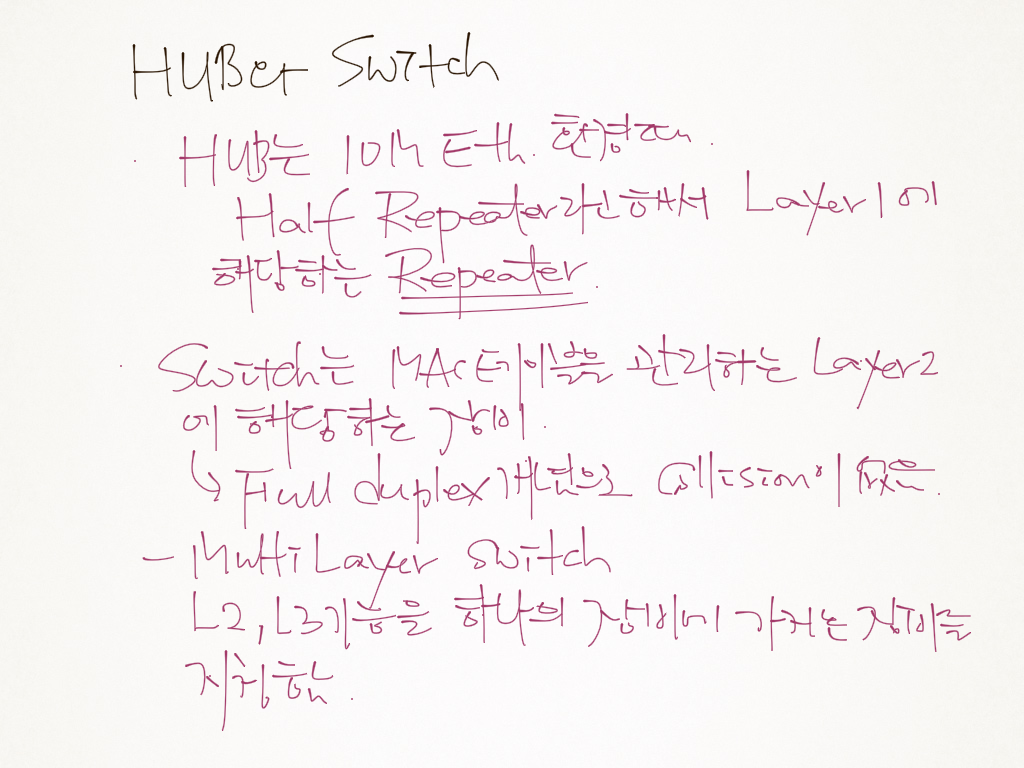 HUB와 Switch
· HUB는 10M Eth. 환경
Half Repeater라 해서 Layer 1에
해당하는 Repeater.
· Switch는 MAC테이블을 관리하는 Layer2
에 해당하는 장비.
↳ Full duplex개념으로 Collision이 없음.
- Multi Layer Switch
L2, L3기능을 하나의 장비에 가지는 장비를
지칭함.